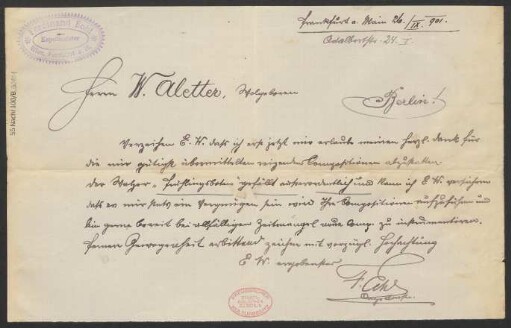 Frankfurt a. Main 26./IX. 901.
Adalbertstr. 24. I
Kapellmeister
Herrn W. Aletter, Wolgeboren
Berlin!
Verzeihen E. W. daß ich erst jetzt mir erlaube meinen herzl. Dank für
die mir gütigst übermittelten reizenden Compositionen abzustatten
Der Walzer „Frühlingsboten“ gefällt außerordentlich und kann ich E. W. versichern
daß es mir stets ein Vergnügen sein wird Ihre Compositionen aufzuführen und
bin gerne bereit bei allfälligem Zeitmangel neue Comp. zu instrumentieren.
Fernere Gewogenheit erbittend zeichne mit vorzügl. Hochachtung
E. W. ergebenster
F.